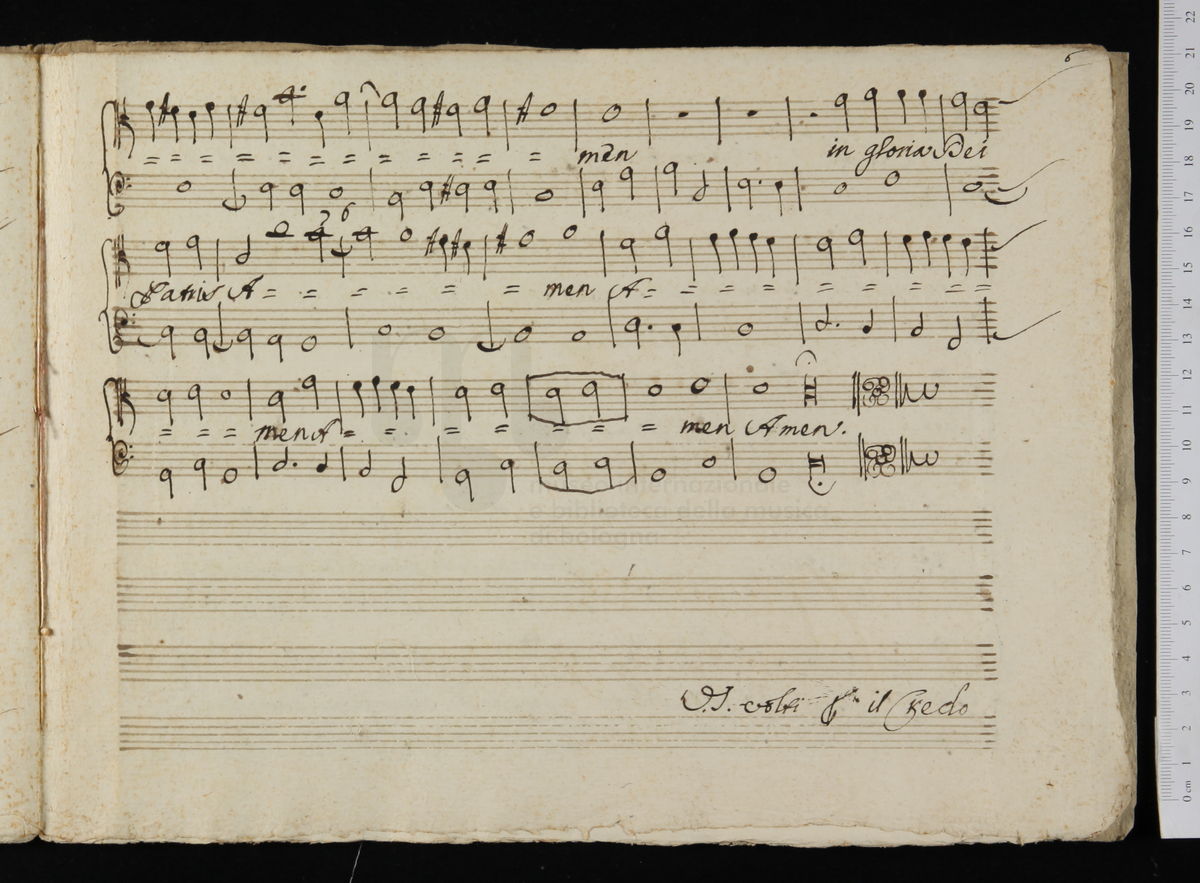 6
= = = = = = = = = men in gloria Dei
7 6
Patris A = = = = = = men A = = = = = = = = =
= = = men A = = = = = = = = men Amen.
museo internazionale
e biblioteca della musica
di bologna
V.S. volti il Credo
0 cm 1 2 3 4 5 6 7 8 9 10 11 12 13 14 15 16 17 18 19 20 21 22